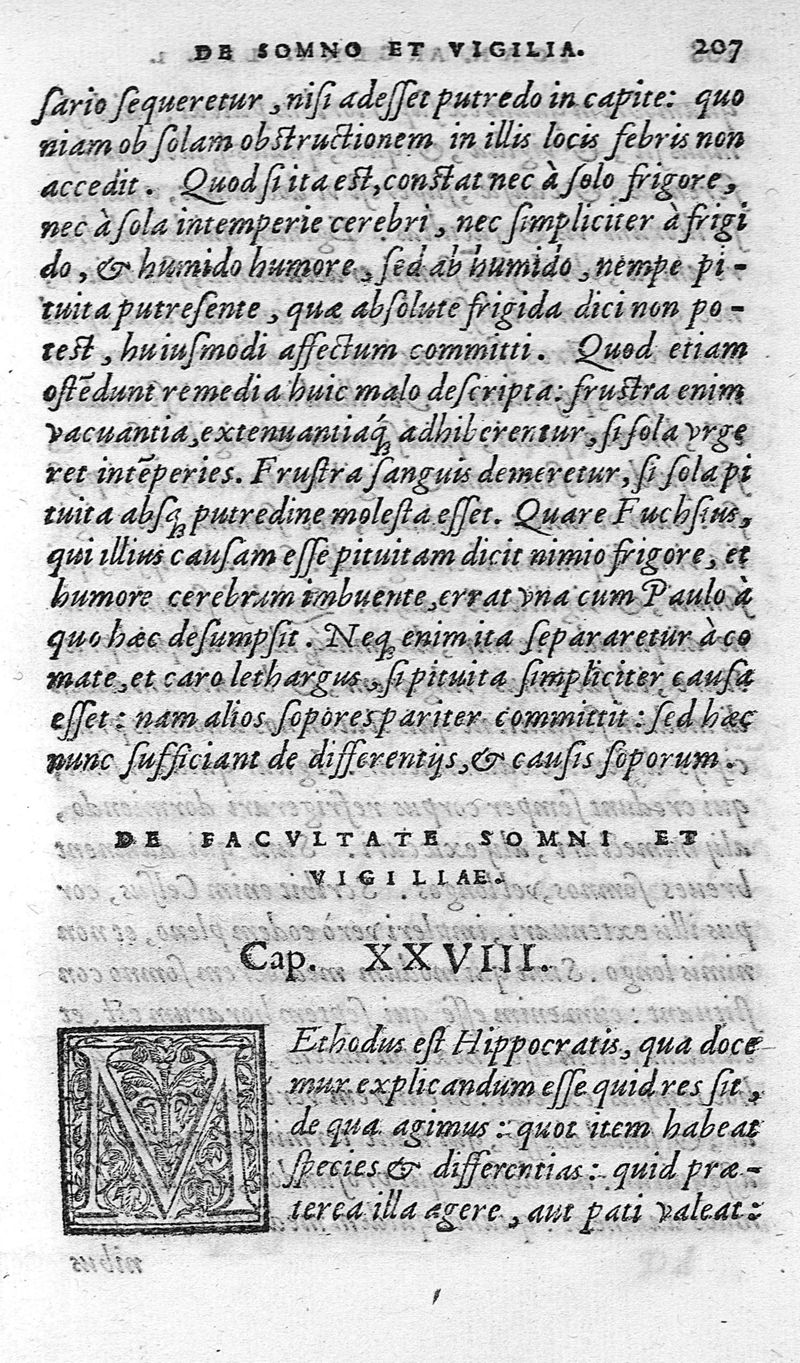 DE SOMNO ET VIGILIA. 207
sario sequeretur, nisi adesset putredo in capite: quo
niam ob solam obstructionem in illis locis febris non
accedit. Quod si ita est, constat nec à solo frigore,
nec à sola intemperie cerebri, nec simpliciter à frigi
do, & humido humore, sed ab humido, nempe pi-
tuita putresente, quæ absolute frigida dici non po-
test, huiusmodi affectum committi. Quod etiam
ostēdunt remedia huic malo descripta: frustra enim
vacuantia, extenuantiaq́ꝫ adhiberentur, si sola vrge
ret intēperies. Frustra sanguis demeretur, si sola pi
tuita absqꝫ putredine molesta esset. Quare Fuchsius,
qui illius causam esse pituitam dicit nimio frigore, et
humore cerebrum imbuente, errat vna cum Paulo à
quo hæc desumpsit. Neqꝫ enim ita separaretur à co
mate, et caro lethargus, si pituita simpliciter causa
esset: nam alios sopores pariter committit: sed hæc
nunc sufficiant de differentijs, & causis soporum.
DE FACVLTATE SOMNI ET
VIGILIAE.
Cap. XXVIII.
MEthodus est Hippocratis, qua doce
mur explicandum esse quid res sit,
de qua agimus: quot item habeat
species & differentias: quid præ-
terea illa agere, aut pati valeat: